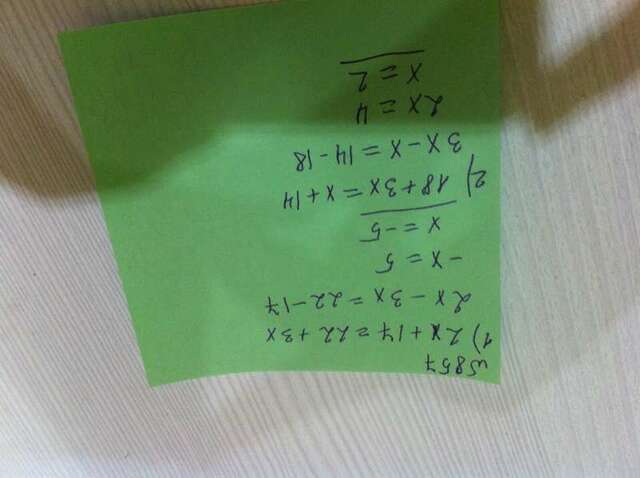 №857
1) 2x + 17 = 22 + 3x
2x - 3x = 22 - 17
- x = 5
x = -5
2) 18 + 3x = x + 14
3x - x = 14 - 18
2x = 4
x = 2